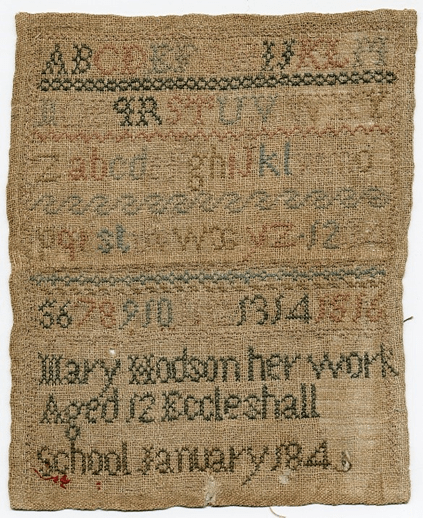 ABCDEF IJKLM
QRSTUV
Zabcd ghiJkl o
pqrstuvw yz 12
5678910 131415
Mary Hodson her work
Aged 12 Eccleshall
School January 184